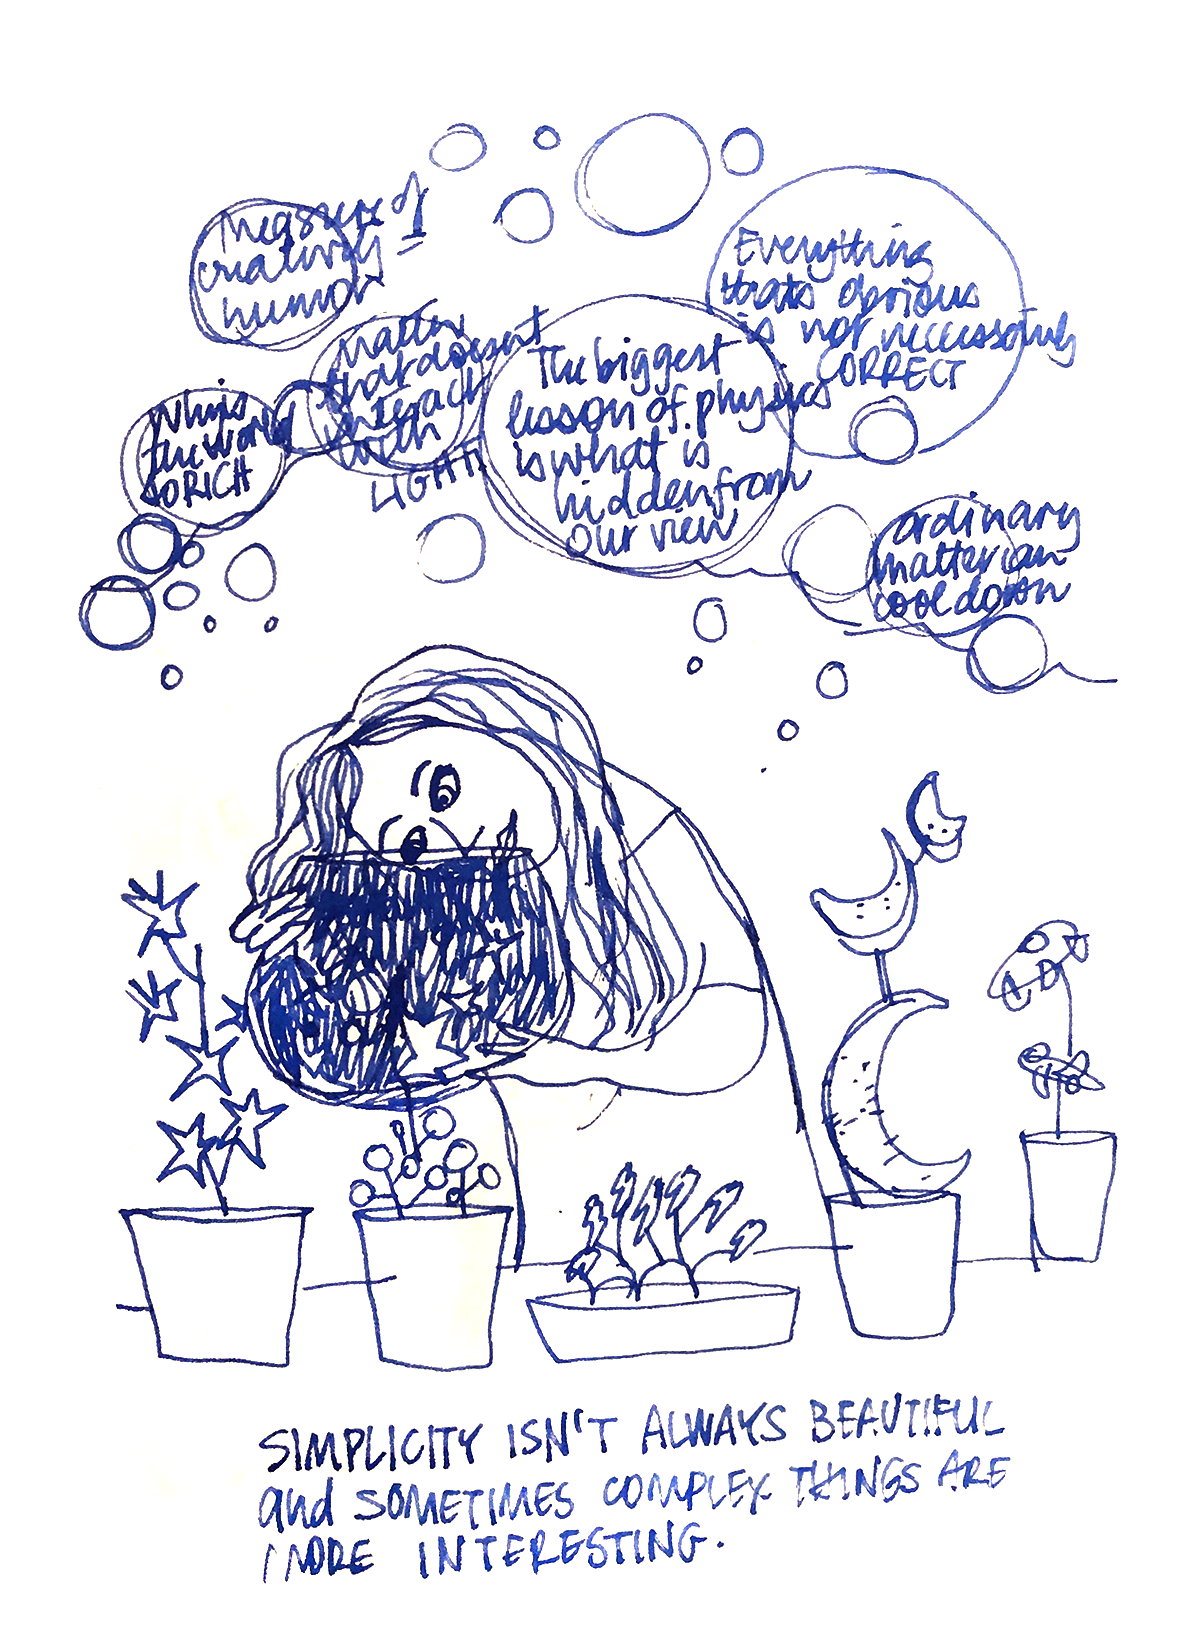 Measure of
creativity =
humor
Matter
that doesent
interact
with
LIGHT
Why is
the world
SO RICH
The biggest
lesson of physics
is what is
hidden from
our view
Everything
thats obvious
is not necessarily
CORRECT
ordinary
matter can
cool down
SIMPLICITY ISN'T ALWAYS BEAUTIFUL
and SOMETIMES COMPLEX THINGS ARE
MORE INTERESTING.